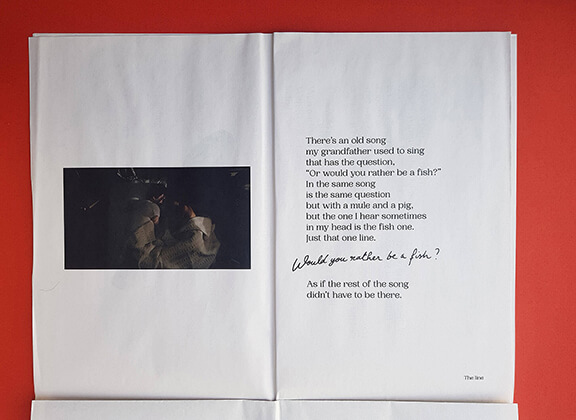 There's an old song
my grandfather used to sing
that has the question,
"Or would you rather be a fish?"
In the same song
is the same question
but with a mule and a pig,
but the one I hear sometimes
in my head is the fish one.
Just that one line.
Would you rather be a fish?
As if the rest of the song
didn't have to be there.
The line